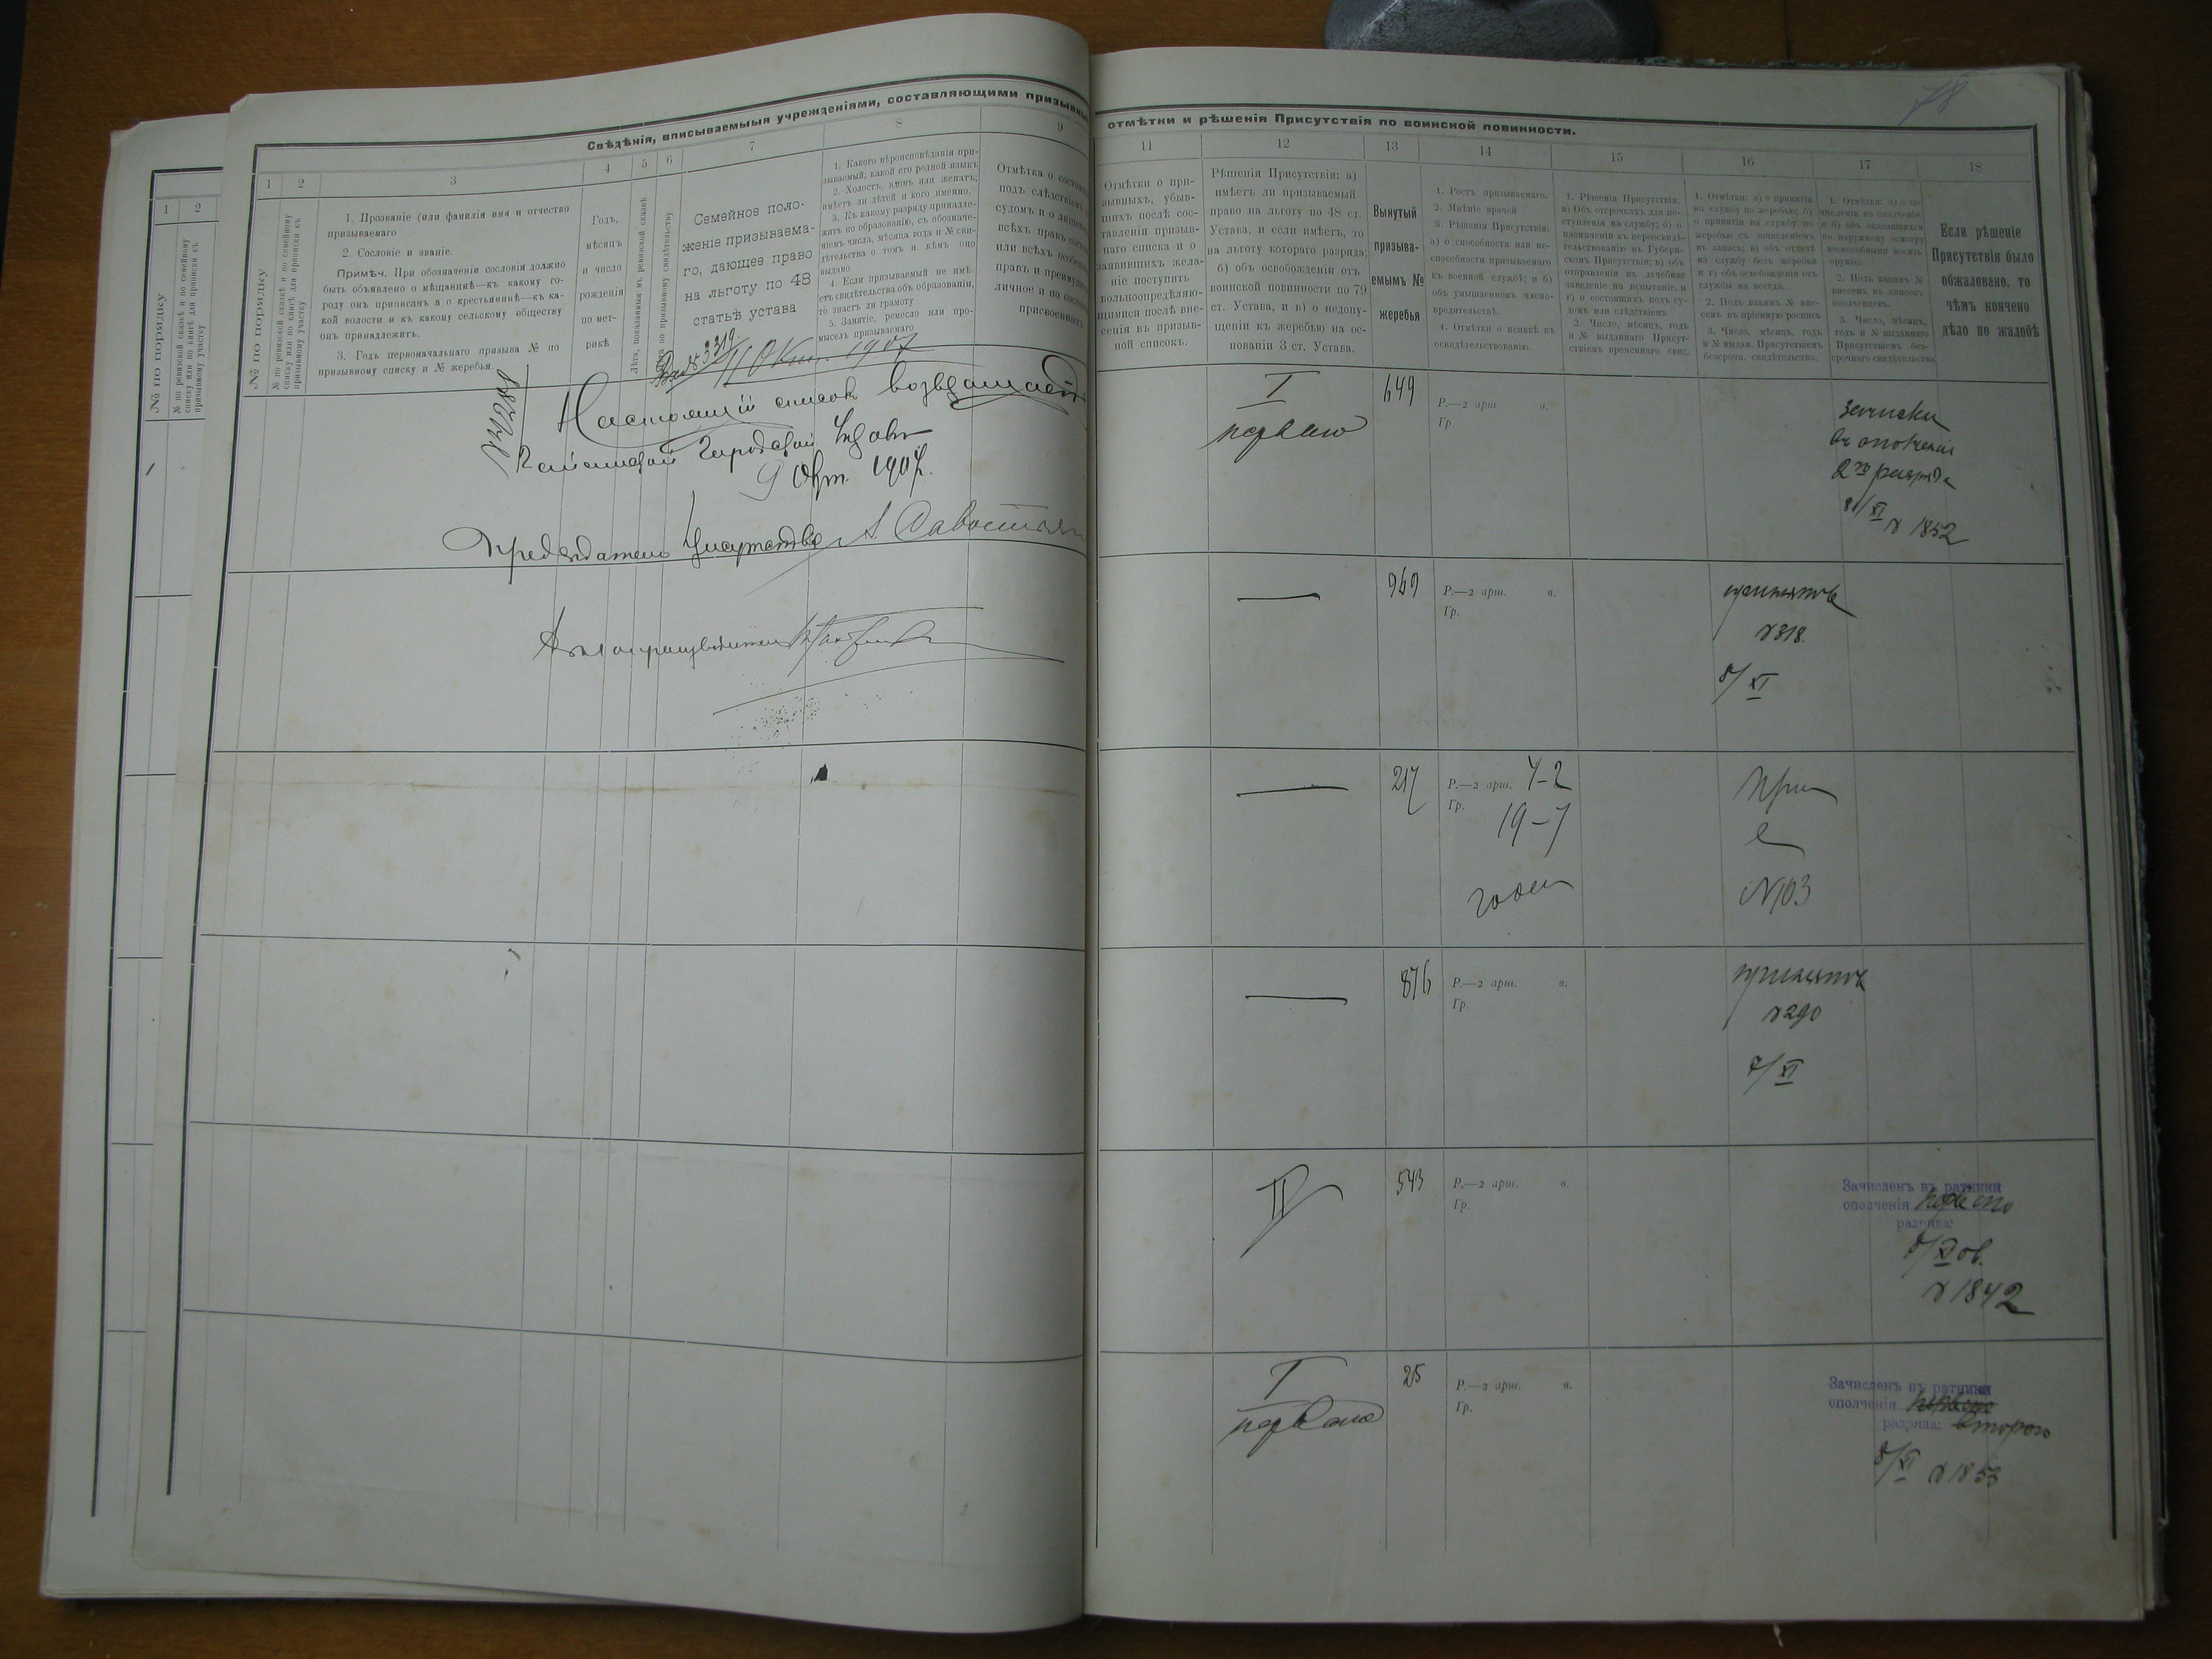 78
Свѣдѣнія, вписываемыя учрежденіями, составляющими призывны
1 2
№ по порядку
№ по ревизской сказкѣ и по семейному списку или по книгѣ для приписки къ призывному участку
1 2 3 4 5 6 7 8 9
№ по порядку
№ по ревизской сказкѣ и по семейному списку или по книгѣ для приписки къ призывному участку
1. Прозваніе (или фамилія имя и отчество
призываемаго
2. Сословіе и званіе.
Примѣч. При обозначеніи сословія должно
быть объявлено о мѣщанинѣ—къ какому го-
роду онъ приписанъ а о крестьянинѣ—къ ка-
кой волости и къ какому сельскому обществу
онъ принадлежитъ.
3. Годъ первоначальнаго призыва № по
призывному списку и № жеребья.
Годъ,
мѣсяцъ
и число
рожденія
по мет-
рикѣ
Лѣта, показанныя въ ревизской сказкѣ
по призывному свидѣтельству
Семейное поло-
женіе призываема-
го, дающее право
на льготу по 48
статьѣ устава
1. Какого вѣроисповѣданія при-
зываемый; какой его родной языкъ
2. Холостъ, вдовъ или женатъ;
имѣетъ ли дѣтей и кого именно.
3. Къ какому разряду принадле-
житъ по образованію, съ обозначе-
ніемъ числа, мѣсяца года и № сви-
дѣтельства о томъ и кѣмъ оно
выдано
4. Если призываемый не имѣ-
етъ свидѣтельства объ образованіи,
то знаетъ ли грамоту
5. Занятіе, ремесло или про-
мыселъ призываемаго
Отмѣтка о состоя
подъ слѣдствіемъ
судомъ и о лишені
всѣхъ правъ состоя
или всѣхъ особен
правъ и преимущ
личное и по состоя
присвоенныхъ
№ 3319
11 Окт. 1907
№ 4288
Настоящій списокъ возвращает
Городской Управ
9 Окт. 1907.
Предсѣдатель Присутствія А. Савостьян
Дѣлопроизводитель
1
отмѣтки и рѣшенія Присутствія по воинской повинности.
11 12 13 14 15 16 17 18
Отмѣтки о при-
зывныхъ, убыв-
шихъ послѣ сос-
тавленія призыв-
наго списка и о
заявившихъ жела-
ніе поступить
вольноопредѣляю-
щимися послѣ вне-
сенія въ призыв-
ной списокъ.
Рѣшенія Присутствія: а)
имѣетъ ли призываемый
право на льготу по 48 ст.
Устава, и если имѣетъ, то
на льготу котораго разряда;
б) объ освобожденіи отъ
воинской повинности по 79
ст. Устава, и в) о недопу-
щеніи къ жеребью на ос-
нованіи 3 ст. Устава.
Вынутый
призыва-
емымъ №
жеребья
1. Ростъ призываемаго.
2. Мнѣніе врачей
3. Рѣшенія Присутствія:
а) о способности или не-
способности призываемаго
къ военной службѣ; и б)
объ умышленномъ члено-
вредительствѣ.
4. Отмѣтки о неявкѣ къ
освидѣтельствованію.
1. Рѣшенія Присутствія:
а) Объ отсрочкахъ для по-
ступленія на службу; б) о
назначеніи къ переосвидѣ-
тельствованію въ Губерн-
скомъ Присутствіи; в) объ
отправленіи въ лечебное
заведеніе на испытаніе, и
г) о состоящихъ подъ су-
домъ или слѣдствіемъ
2. Число, мѣсяцъ, годъ
и № выданнаго Присут-
ствіемъ временнаго свид.
1. Отмѣтки: а) о принятіи
на службу по жеребью; б)
о принятіи на службу по
жеребью съ зачисленіемъ
въ запасъ; в) объ отдачѣ
на службу безъ жеребья
и г) объ освобожденіи отъ
службы на всегда.
2. Подъ какимъ № вне-
сенъ въ пріемную роспись
3. Число, мѣсяцъ, годъ
и № выдан. Присутствіемъ
безсрочн. свидѣтельства.
1. Отмѣтки: а) о за-
численіи въ ополченіе,
и б) объ оказавшихся
по наружному осмотру
неспособными носить
оружіе.
2. Подъ какимъ №
внесенъ въ списокъ
ополченцевъ.
3. Число, мѣсяцъ,
годъ и № выданнаго
Присутствіемъ без-
срочнаго свидѣтельства
Если рѣшеніе
Присутствія было
обжаловано, то
чѣмъ кончено
дѣло по жалобѣ
I
перваго
649
Р.—2 арш. в.
Гр.
въ ополченіе
2го разряда
8/XI № 1852
969
Р.—2 арш. в.
Гр.
принятъ
№ 318.
8/XI
217
Р.—2 арш. 4-2
Гр. 19-7
годен
При
е
№ 103
876
Р.—2 арш. в.
Гр.
принятъ
№ 290
7/XI
II
543
Р.—2 арш. в.
Гр.
Зачисленъ въ ратники
ополченія перваго
разряда:
№ 1842
I
перваго
25
Р.—2 арш. в.
Гр.
Зачисленъ въ ратники
ополченія перваго
разряда: второго
8/XI № 1853